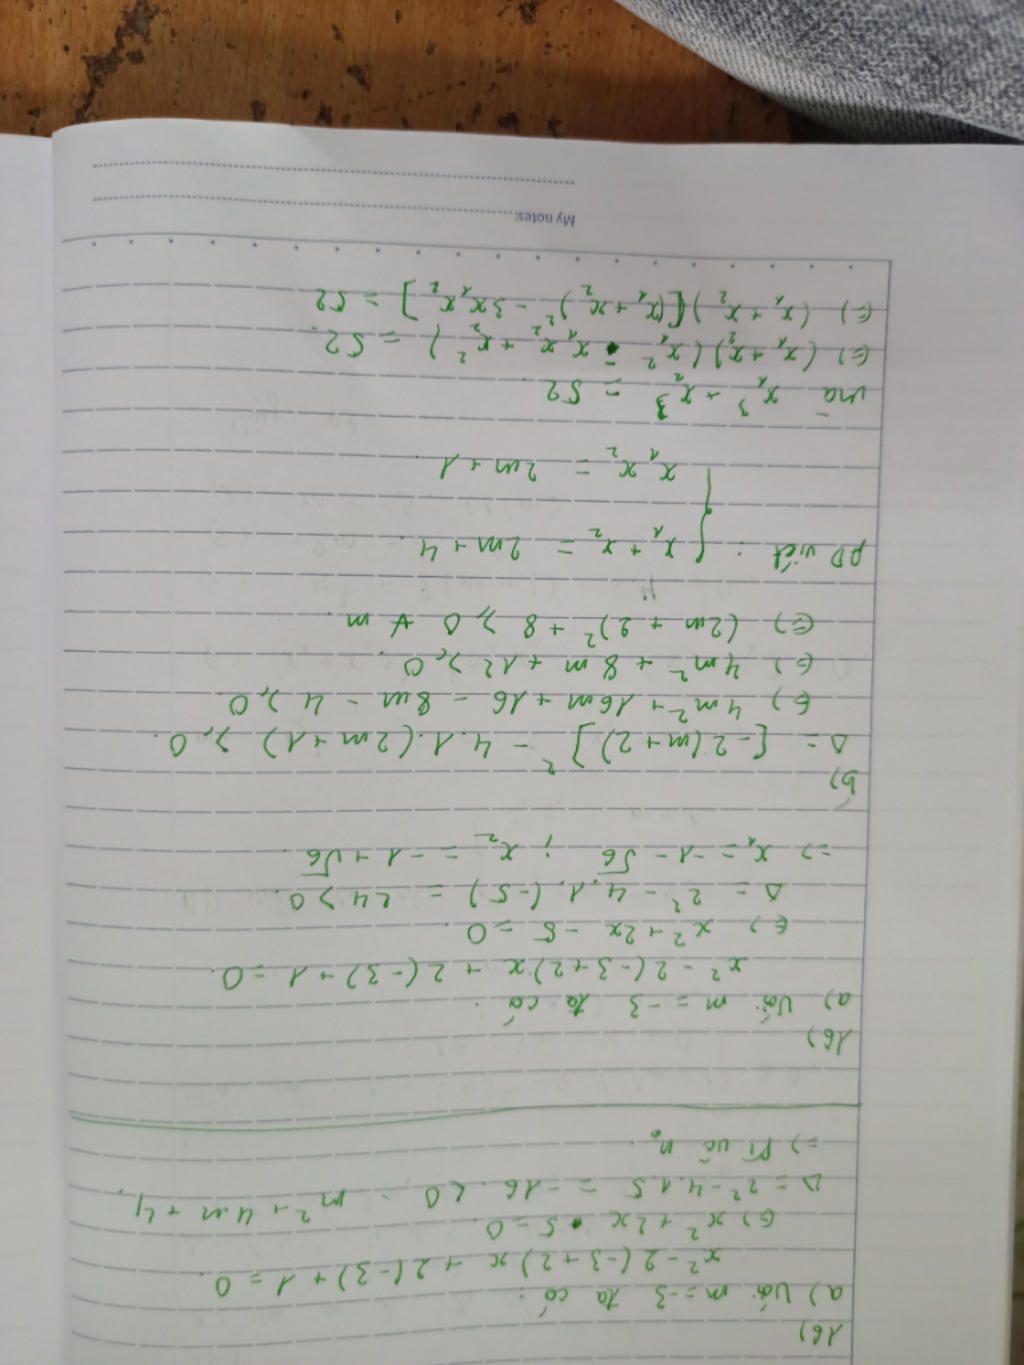 16)
a) Với m = -3 ta có :
x² - 2(-3+2)x + 2(-3) + 1 = 0.
(=) x² + 2x • 5 = 0.
Δ = 2² - 4.1.5 = -16 < 0 - m² + 4m + 4,
=) PT vô n₀.
16)
a) Với m = -3 ta có :
x² - 2(-3+2)x + 2(-3) + 1 = 0.
(=) x² + 2x - 5 = 0.
Δ = 2² - 4.1.(-5) = 24 > 0.
=) x₁ = -1 - √6 ; x₂ = -1 + √6
b)
Δ = [-2(m+2)]² - 4.1.(2m+1) ≥ 0.
(=) 4m² + 16m + 16 - 8m - 4 ≥ 0.
(=) 4m² + 8m + 12 ≥ 0.
(=) (2m + 2)² + 8 ≥ 0 ∀ m.
PĐ viét : { x₁ + x₂ = 2m + 4.
x₁x₂ = 2m + 1.
mà x₁³ + x₂³ = 52
(=) (x₁ + x₂)(x₁² - x₁x₂ + x₂²) = 52.
(=) (x₁ + x₂)[(x₁ + x₂)² - 3x₁x₂] = 52
My notes: